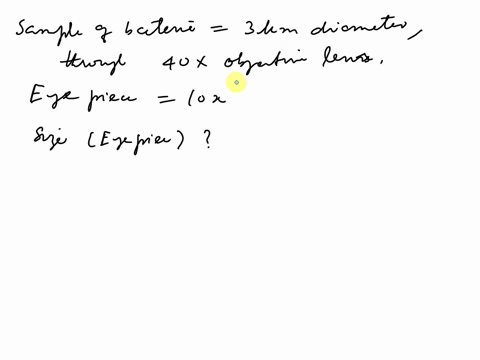 Sample of bacteria = 3 km diameter,
through 40x objective lens.
Eye piece = 10x
Size (Eye piece) ?